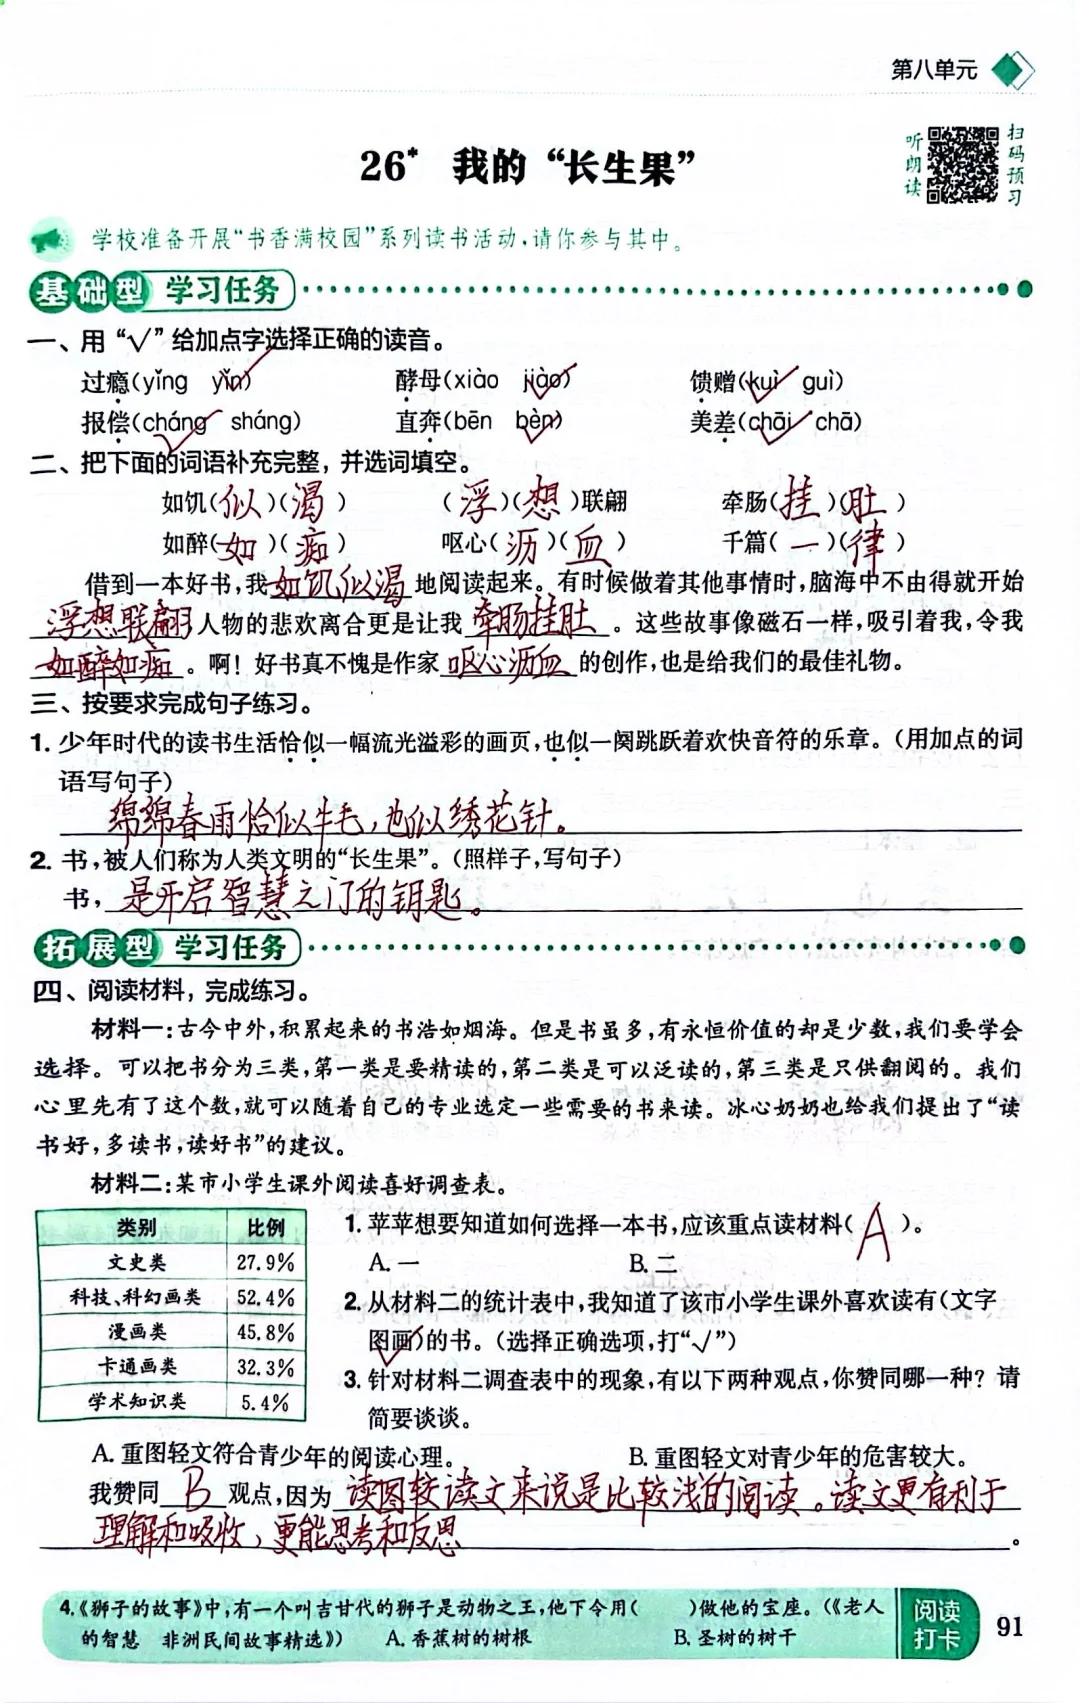 第八单元
26* 我的“长生果”
听朗读
扫码预习
学校准备开展“书香满校园”系列读书活动,请你参与其中。
基础型 学习任务
一、用“√”给加点字选择正确的读音。
过瘾(yǐng yǐn√) 酵母(xiào jiào√) 馈赠(kuì√ guì)
报偿(cháng√ sháng) 直奔(bēn bèn√) 美差(chāi√ chā)
二、把下面的词语补充完整，并选词填空。
如饥(似)(渴) (浮)(想)联翩 牵肠(挂)(肚)
如醉(如)(痴) 呕心(沥)(血) 千篇(一)(律)
借到一本好书,我如饥似渴地阅读起来。有时候做着其他事情时,脑海中不由得就开始
浮想联翩 人物的悲欢离合更是让我 牵肠挂肚 。这些故事像磁石一样,吸引着我,令我
如醉如痴 。啊！好书真不愧是作家 呕心沥血 的创作,也是给我们的最佳礼物。
三、按要求完成句子练习。
1. 少年时代的读书生活恰似一幅流光溢彩的画页,也似一阕跳跃着欢快音符的乐章。(用加点的词
语写句子)
绵绵春雨恰似牛毛,也似绣花针。
2. 书,被人们称为人类文明的“长生果”。(照样子,写句子)
书,是开启智慧之门的钥匙。
拓展型 学习任务
四、阅读材料，完成练习。
材料一:古今中外,积累起来的书浩如烟海。但是书虽多,有永恒价值的却是少数,我们要学会
选择。可以把书分为三类,第一类是要精读的,第二类是可以泛读的,第三类是只供翻阅的。我们
心里先有了这个数,就可以随着自己的专业选定一些需要的书来读。冰心奶奶也给我们提出了“读
书好,多读书,读好书”的建议。
材料二:某市小学生课外阅读喜好调查表。
类别 比例
文史类 27.9%
科技、科幻画类 52.4%
漫画类 45.8%
卡通画类 32.3%
学术知识类 5.4%
1. 苹苹想要知道如何选择一本书,应该重点读材料(A)。
A. 一 B. 二
2. 从材料二的统计表中,我知道了该市小学生课外喜欢读有(文字
图画√)的书。(选择正确选项,打“√”)
3. 针对材料二调查表中的现象,有以下两种观点,你赞同哪一种？请
简要谈谈。
A. 重图轻文符合青少年的阅读心理。 B. 重图轻文对青少年的危害较大。
我赞同 B 观点,因为 读图较读文来说是比较浅的阅读。读文更有利于
理解和吸收、更能思考和反思 。
4.《狮子的故事》中,有一个叫吉甘代的狮子是动物之王,他下令用( )做他的宝座。(《老人
的智慧 非洲民间故事精选》) A. 香蕉树的树根 B. 圣树的树干
阅读打卡
91